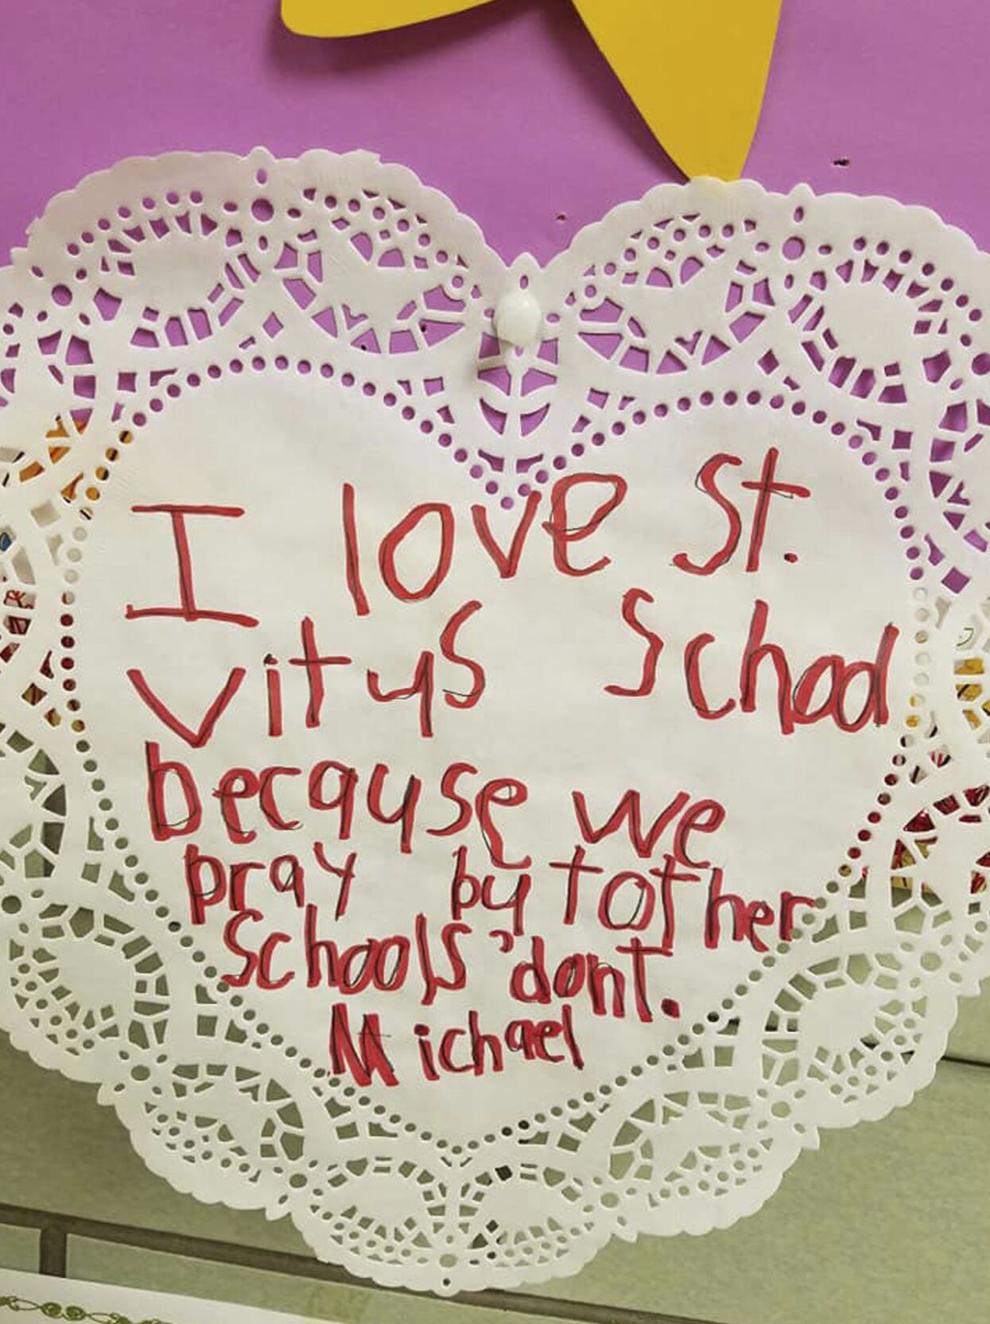 I love St.
Vitus School
because we
pray by tother
Schools 'dont.
Michael